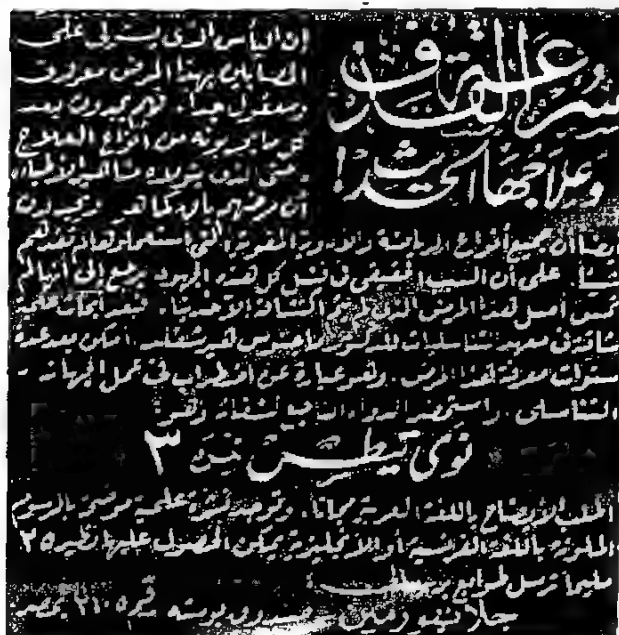 سرعة القذف
وعلاجها الحديث!
إن اليأس الذى يستولى على
المصابين بهذا المرض معروف
ومعقول جداً. فهم يجدون بعد
كل ما يجربونه من أنواع العلاج
أن مرضهم باق كما هو ويجدون
أيضا أن جميع أنواع الرياضة والأدوية المقوية التى استعملوها لم تفدهم
شيئاً. على أن السبب الحقيقى فى فشل كل هذه الجهود يرجع إلى أنها لم
تمس أصل هذا المرض الذى لم يتم اكتشافه إلا حديثا. فبعد أبحاث علمية
شاقة فى معهد التناسليات للدكتور ماجنوس هيرشفلد. أمكن بعد عدة
سنوات معرفة هذا المرض. وهو عبارة عن اضطراب فى عمل الجهاز
التناسلى. واستحضر الدواء الناجع لشفائه وهو:
نمرة ٣
اطلب الإيضاح باللغة العربية مجانا. وتوجد نشرة علمية موضحة بالرسوم
الملونة باللغة الفرنسية أو الانجليزية يمكن الحصول عليها نظير ٢٥
مليما ترسل طوابع بوستة
جلانيدو فارمين. صندوق بوسته رقم ٢١٠٥ بمصر